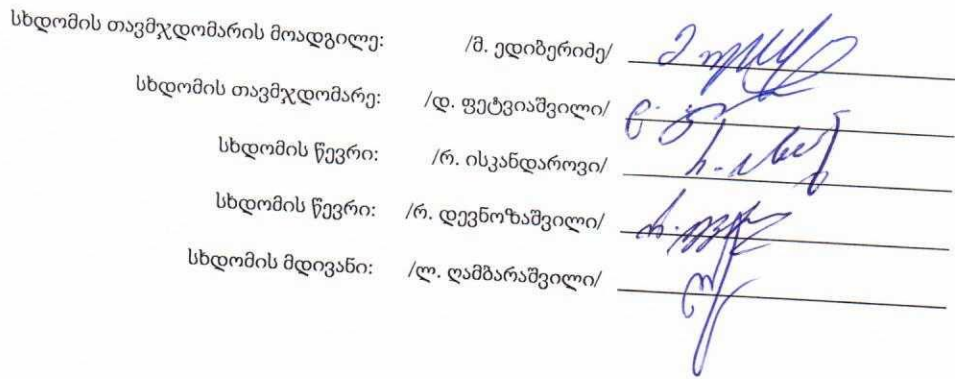 სხდომის თავმჯდომარის მოადგილე: /მ. ედიბერიძე/
სხდომის თავმჯდომარე: /დ. ფეტვიაშვილი/
სხდომის წევრი: /რ. ისკანდაროვი/
სხდომის წევრი: /რ. დევნოზაშვილი/
სხდომის მდივანი: /ლ. ღამბარაშვილი/